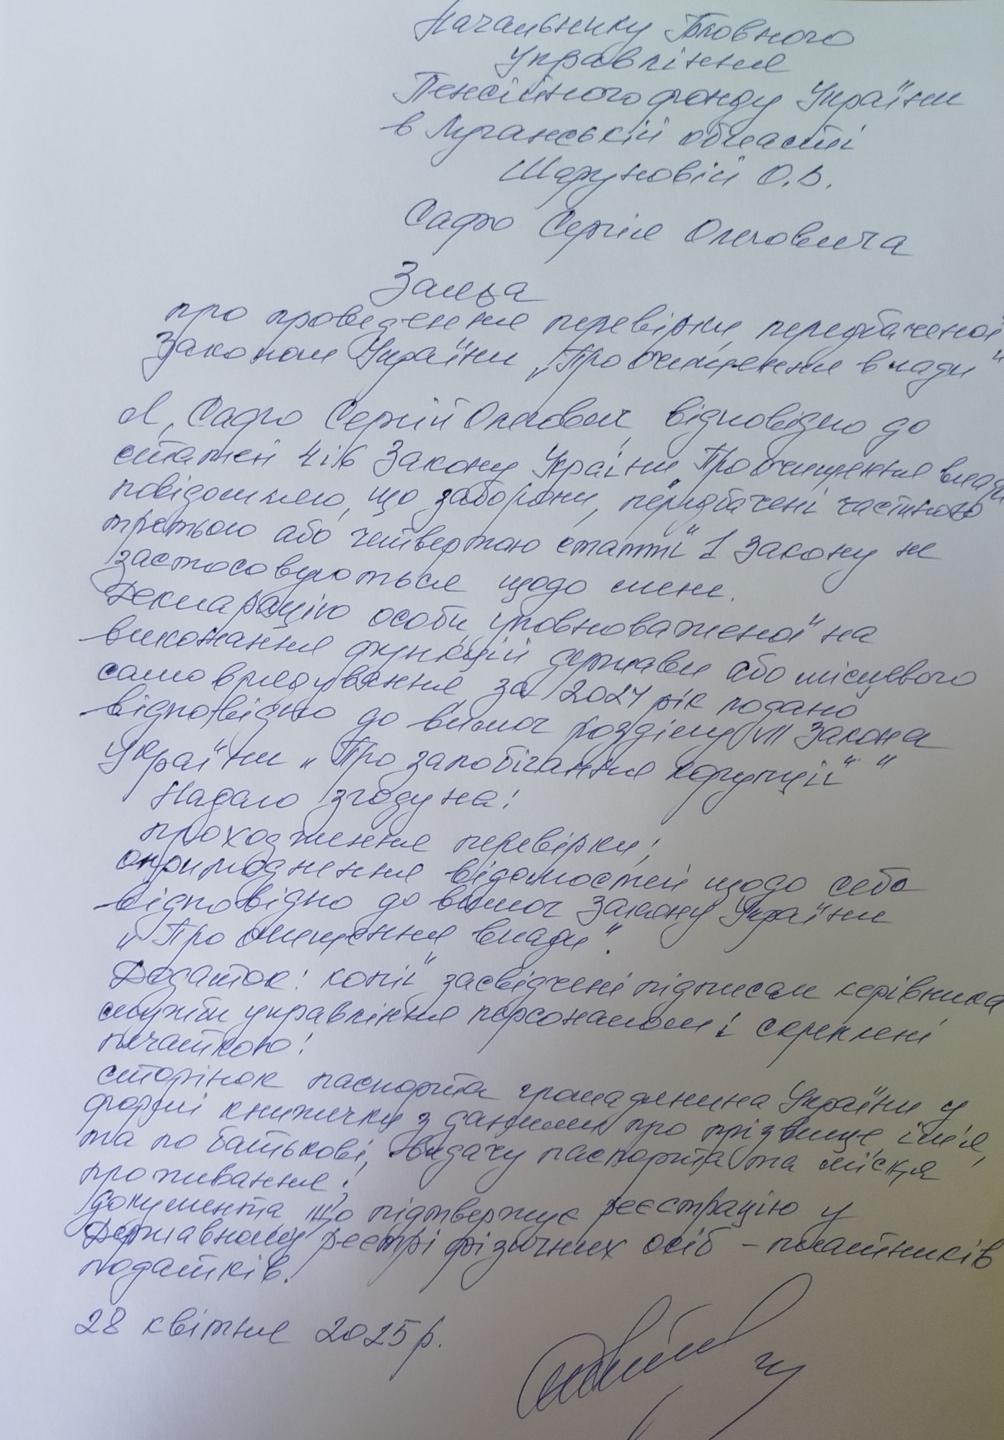 Начальнику Головного
Управління
Пенсійного фонду України
в Луганській області
Шаруновій О.В.
Сафо Сергія Олеговича
Заява
про проведення перевірки, передбаченої
Законом України „Про очищення влади"
Я, Сафо Сергій Олегович, відповідно до
статей 4 і 6 Закону України Про очищення влади
повідомляю, що заборони, передбачені частиною
третьою або четвертою статті 1 Закону не
застосовуються щодо мене.
Декларацію особи, уповноваженої на
виконання функцій держави або місцевого
самоврядування за 2024 рік подано
відповідно до вимог розділу VII Закона
України „Про запобігання корупції"
Надаю згоду на:
проходження перевірки;
оприлюднення відомостей щодо себе
відповідно до вимог Закону України
„Про очищення влади".
Додаток: копії засвідчені підписом керівника
служби управління персоналом і скріплені
печаткою:
сторінок паспорта громадянина України у
формі книжечки з даними про прізвище, ім'я,
та по батькові, видачу паспорта та місця
проживання;
документа що підтверджує реєстрацію у
Державному реєстрі фізичних осіб – платників
податків.
28 квітня 2025 р.